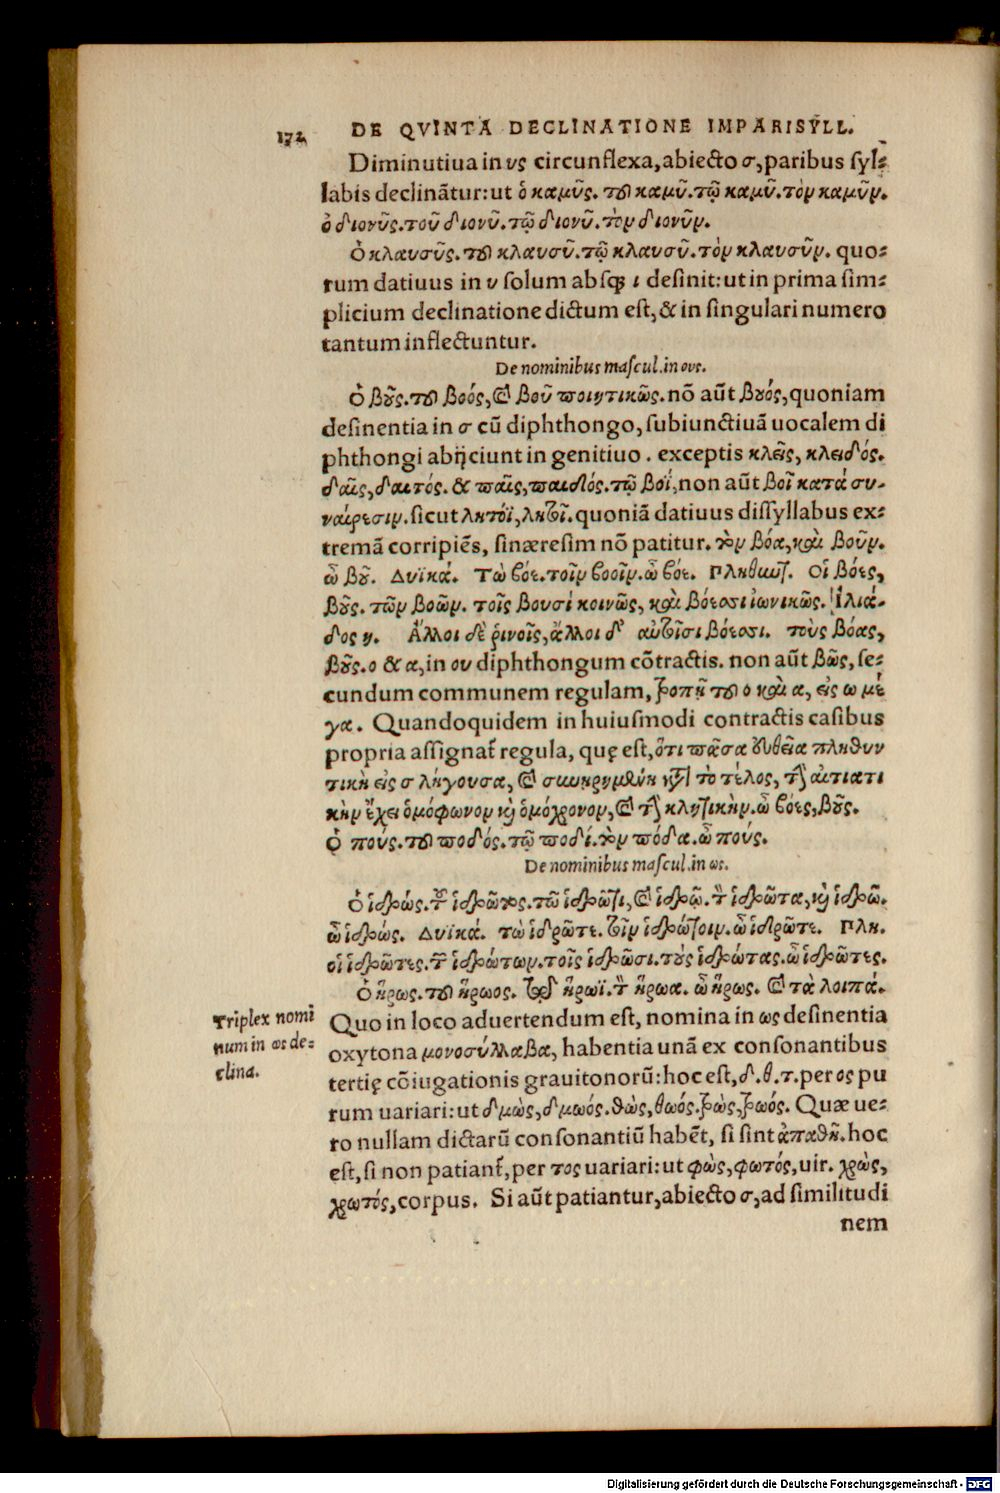 172 DE QVINTA DECLINATIONE IMPARISYLL.
Diminutiua in υς circunflexa, abiecto σ, paribus syl-
labis declinātur: ut ὁ καμῦς. τοῦ καμῦ. τῷ καμῦ. τὸν καμῦν.
ὁ διονῦς. τοῦ διονῦ. τῷ διονῦ. τὸν διονῦν.
Ὁ κλαυσῦς. τοῦ κλαυσῦ. τῷ κλαυσῦ. τὸν κλαυσῦν. quo-
rum datiuus in υ solum absq; ι desinit: ut in prima sim-
plicium declinatione dictum est, & in singulari numero
tantum inflectuntur.
De nominibus mascul. in ους.
Ὁ βοῦς. τοῦ βοός, καὶ βοῦ ποιητικῶς. nō aūt βουός, quoniam
desinentia in σ cū diphthongo, subiunctiuā uocalem di
phthongi abijciunt in genitiuo. exceptis κλεῖς, κλειδός.
δαῖς, δαιτός. & παῖς, παιδός. τῷ βοΐ, non aūt βοῖ κατὰ συ-
ναίρεσιν. sicut λητόϊ, λητοῖ. quoniā datiuus dissyllabus ex-
tremā corripiēs, sinæresim nō patitur. τὸν βόα, καὶ βοῦν.
ὦ βοῦ. Δυϊκά. Τὼ βόε. τοῖν βοοῖν. ὦ βόε. Πληθωτ. Οἱ βόες,
βοῦς. τῶν βοῶν. τοῖς βουσὶ κοινῶς, καὶ βόεσσι ἰωνικῶς. Ἰλιά-
δος η. Ἄλλοι δὲ ῥινοῖς, ἄλλοι δ' αὐτοῖσι βόεσσι. τοὺς βόας,
βοῦς. ο & α, in ου diphthongum cōtractis. non aūt βῶς, se-
cundum communem regulam, τροπῇ τοῦ ο καὶ α, εἰς ω μέ
γα. Quandoquidem in huiusmodi contractis casibus
propria assignat̄ regula, quę est, ὅτι πᾶσα εὐθεῖα πληθυν
τικὴ εἰς σ λήγουσα, καὶ συνῃρημένη κατὰ τὸ τέλος, τὴν αἰτιατι
κὴν ἔχει ὁμόφωνον καὶ ὁμόχρονον, καὶ τὴν κλητικὴν. ὦ βόες, βοῦς.
Ὁ πούς. τοῦ ποδός. τῷ ποδί. τὸν πόδα. ὦ πούς.
De nominibus mascul. in ως.
Ὁ ἱδρώς. τοῦ ἱδρῶτος. τῶ ἱδρῶτι, καὶ ἱδρῷ. τὸν ἱδρῶτα, καὶ ἱδρῶ.
ὦ ἱδρώς. Δυϊκά. τὼ ἱδρῶτε. τοῖν ἱδρώτοιν. ὦ ἱδρῶτε. Πλη.
οἱ ἱδρῶτες. τῶν ἱδρώτων. τοῖς ἱδρῶσι. τοὺς ἱδρώτας. ὦ ἱδρῶτες.
Ὁ ἥρως. τοῦ ἥρωος. τῷ ἥρωϊ. τὸν ἥρωα. ὦ ἥρως. καὶ τὰ λοιπά.
Triplex nomī
num in ως de-
clina.
Quo in loco aduertendum est, nomina in ως desinentia
oxytona μονοσύλλαβα, habentia unā ex consonantibus
tertię cōiugationis grauitonorū: hoc est, δ. θ. τ. per ος pu
rum uariari: ut δμὼς, δμωός. θὼς, θωός. τρὼς, τρωός. Quæ ue-
ro nullam dictarū consonantiū habēt, si sint ἀπαθῆ. hoc
est, si non patiant̄, per τος uariari: ut φὼς, φωτός, uir. χρὼς,
χρωτός, corpus. Si aūt patiantur, abiecto σ, ad similitudi
nem
Digitalisierung gefördert durch die Deutsche Forschungsgemeinschaft - DFG